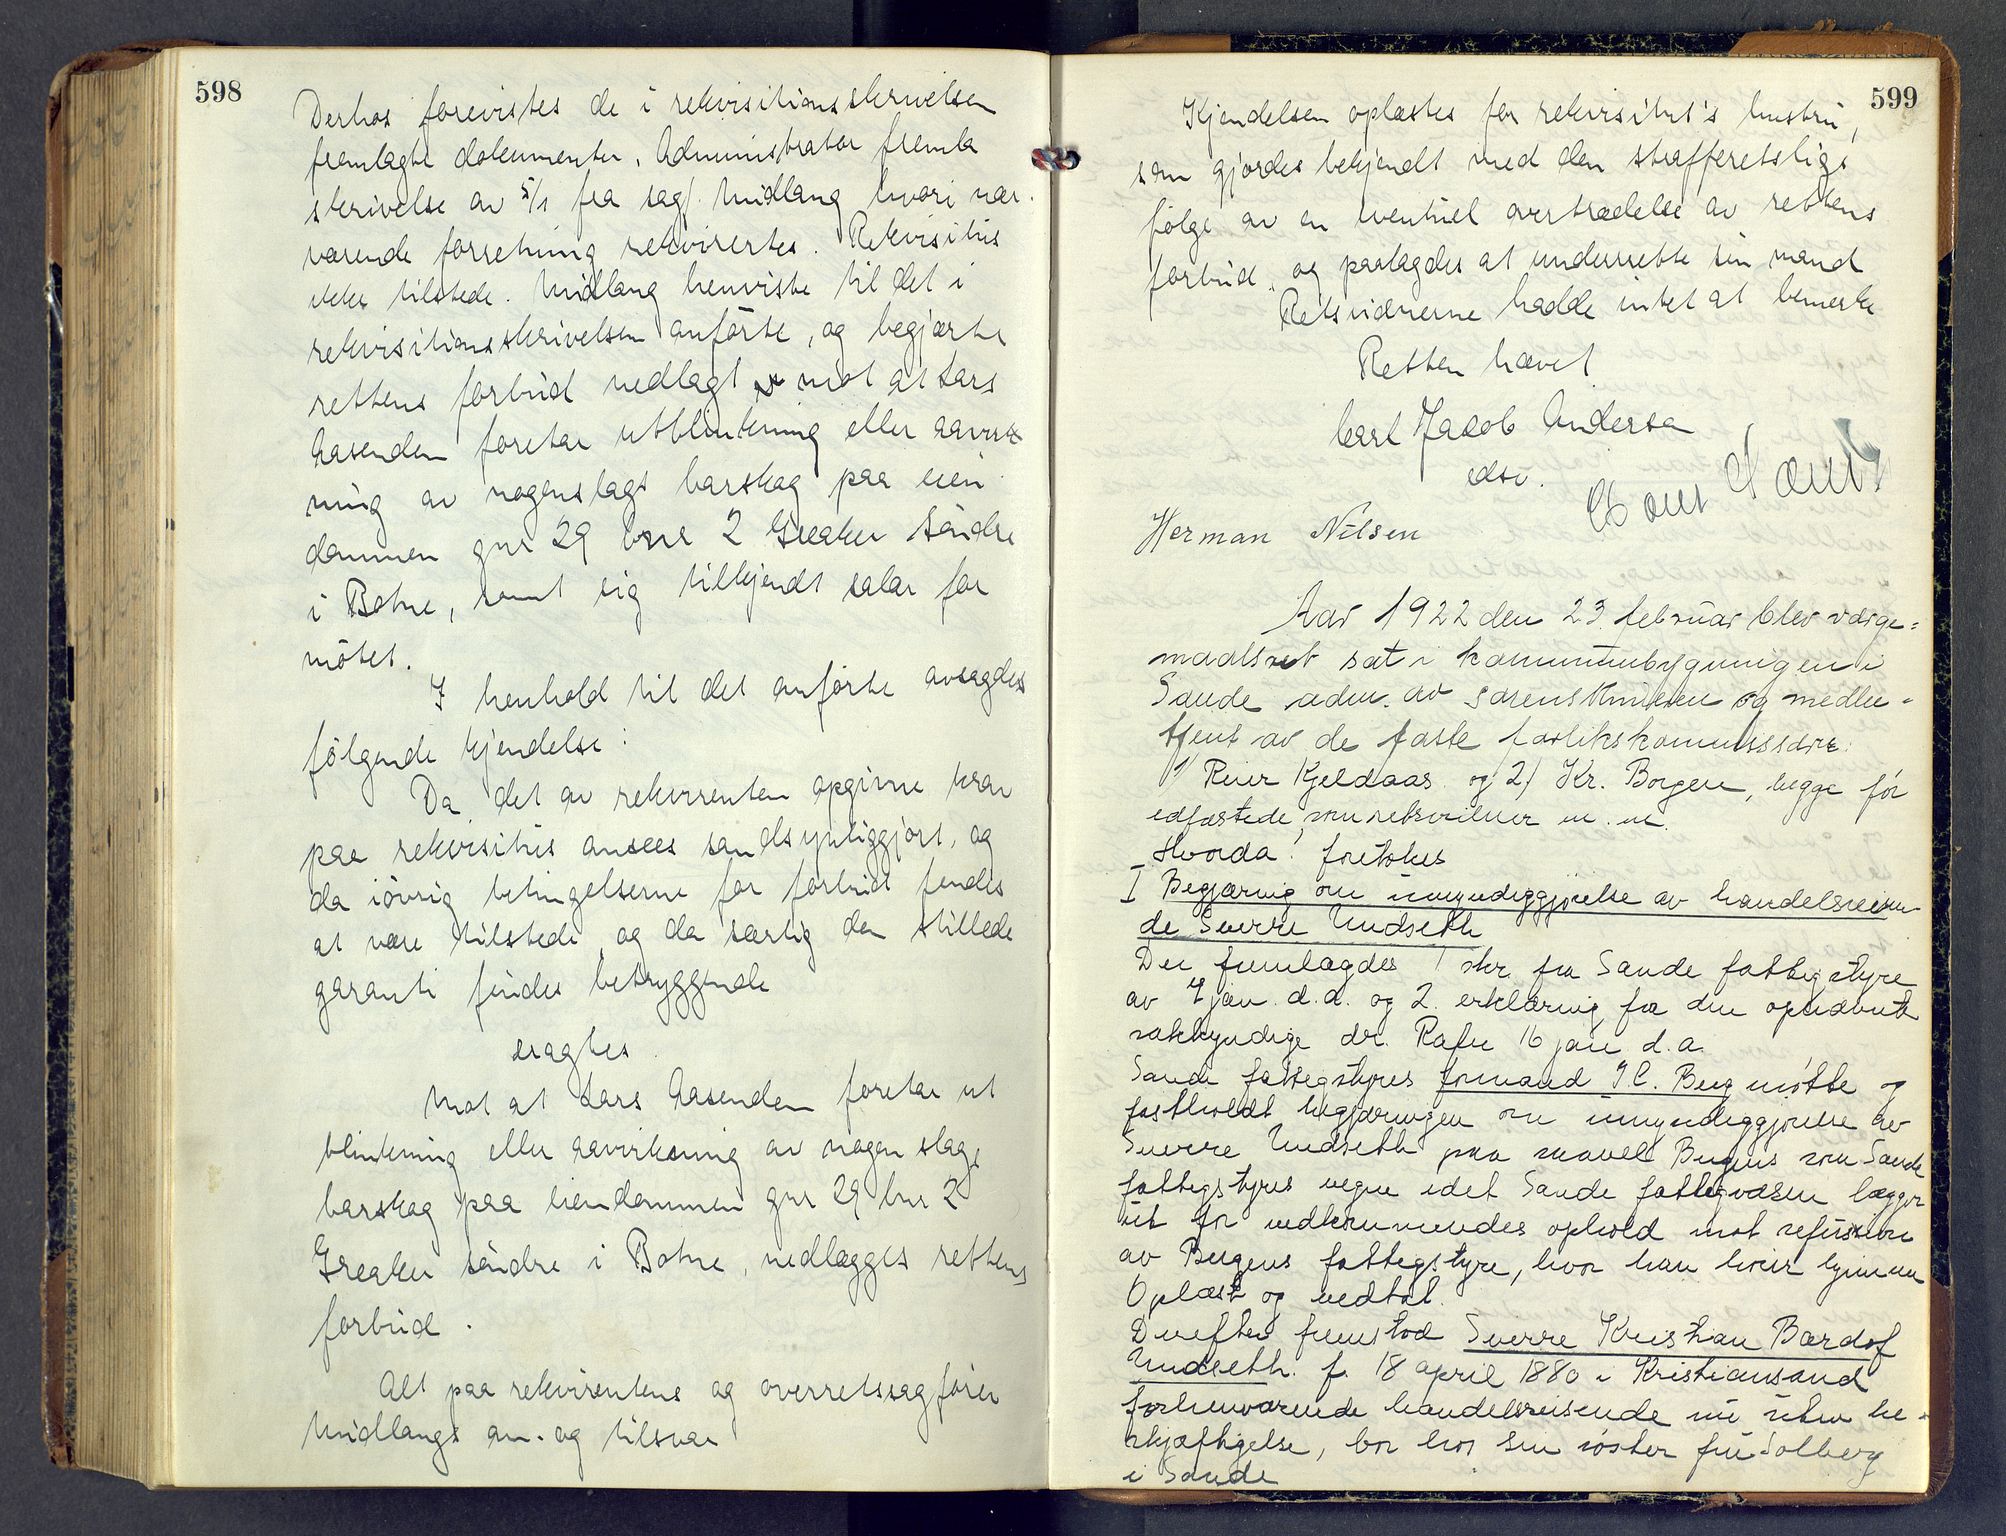 598
Derhos forevistes de i rekvisitionsskrivelsen
fremlagte dokumenter. Administrator fremla
skrivelse av 5/1 fra sagf. Midlang hvori nær-
værende forretning rekvirertes. Rekvisitus
ikke tilstede. Midlang henviste til det i
rekvisitionsskrivelsen anførte, og begjærte
rettens forbud nedlagt mot at Lars
Aasenden foretar utblinkning eller aavirk
ning av nogenslags barskog paa eien
dommen gnr 29 bnr 2 Greaker søndre
i Botne, samt sig tilkjendt salær for
møtet.
I henhold til det anførte avsagdes
følgende kjendelse:
Da det av rekvirenten opgivne krav
paa rekvisitus ansees sandsynliggjort, og
da iøvrig betingelserne for forbud findes
at være tilstede og da særlig den stillede
garanti findes betryggende
eragtes
Mot at Lars Aasenden foretar ut
blinkning eller aavirkning av nogen slags
barskog paa eiendommen gnr 29 bnr 2
Greaker søndre i Botne, nedlægges rettens
forbud.
Alt paa rekvirentens og overretssagfører
Midlangs an- og tilsvar
599
Kjendelsen oplæstes for rekvisitus's hustru,
som gjordes bekjendt med den strafferetslige
følge av en eventuel overtrædelse av rettens
forbud, og paalagdes at underrette sin mand
Retsvidnerne hadde intet at bemerke
Retten hævet
Carl Jacob Andersen
edsv.
Herman Nilsen
Aar 1922 den 23 februar blev værge-
maalsret sat i kommunebygningen i
Sande adm. av sorenskriveren og medbe-
tjent av de faste forlikskommissærer:
1/ Reier Kjeldaas og 2/ Kr. Borgen, begge før
edfæstede som retsvidner m. m.
Hvorda! foretokes
I Begjæring om umyndiggjørelse av handelsreisen-
de Sverre Undseth
Der fremlagdes 1 skr fra Sande fattigstyre
av 4 jan. d.a. og 2. erklæring fra den opnævnte
sakkyndige dr. Rafn 16 jan d.a.
Sande fattigstyres formand I.C. Berg møtte og
fastholdt begjæringen om umyndiggjørelse av
Sverre Undseth paa saavel Bergens som Sande
fattigstyres vegne idet Sande fattigvæsen lægger
ut for vedkommendes ophold mot refusion
av Bergens fattigstyre, hvor han hører hjemme
Oplæst og vedtat.
Derefter fremstod Sverre Kristian Bærdof
Undseth. f. 18 april 1880 i Kristiansand
forhenværende handelsreisende nu uten be-
skjæftigelse, bor hos sin søster fru Solberg
i Sande